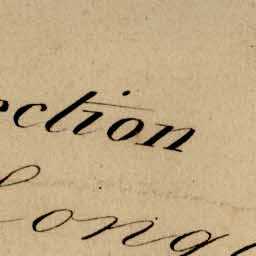 ection
Long